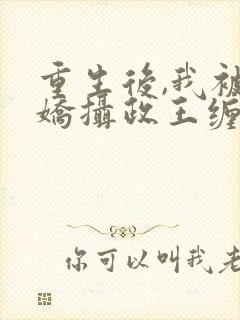 重生後,我被
嬌攝政王缠
你可以叫我老